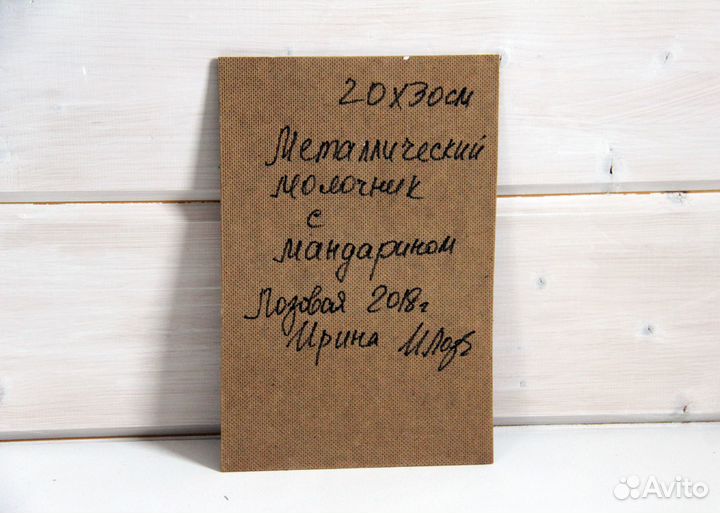 20х30см
Металлический
молочник
с
мандарином
Лозовая 2018г
Ирина
Avito